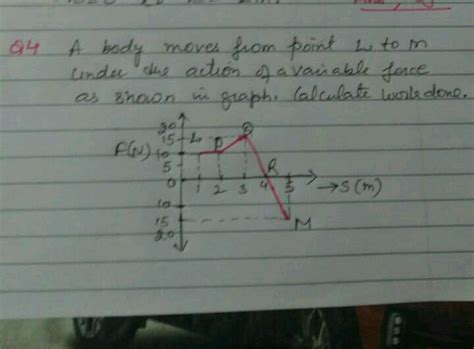 Q4 A body moves from point L to M
under the action of a variable force
as shown in graph. Calculate work done.
20
15 L Q
F(N) 10 P
5
0 1 2 3 4 R 5 →S(m)
10
15 M
20